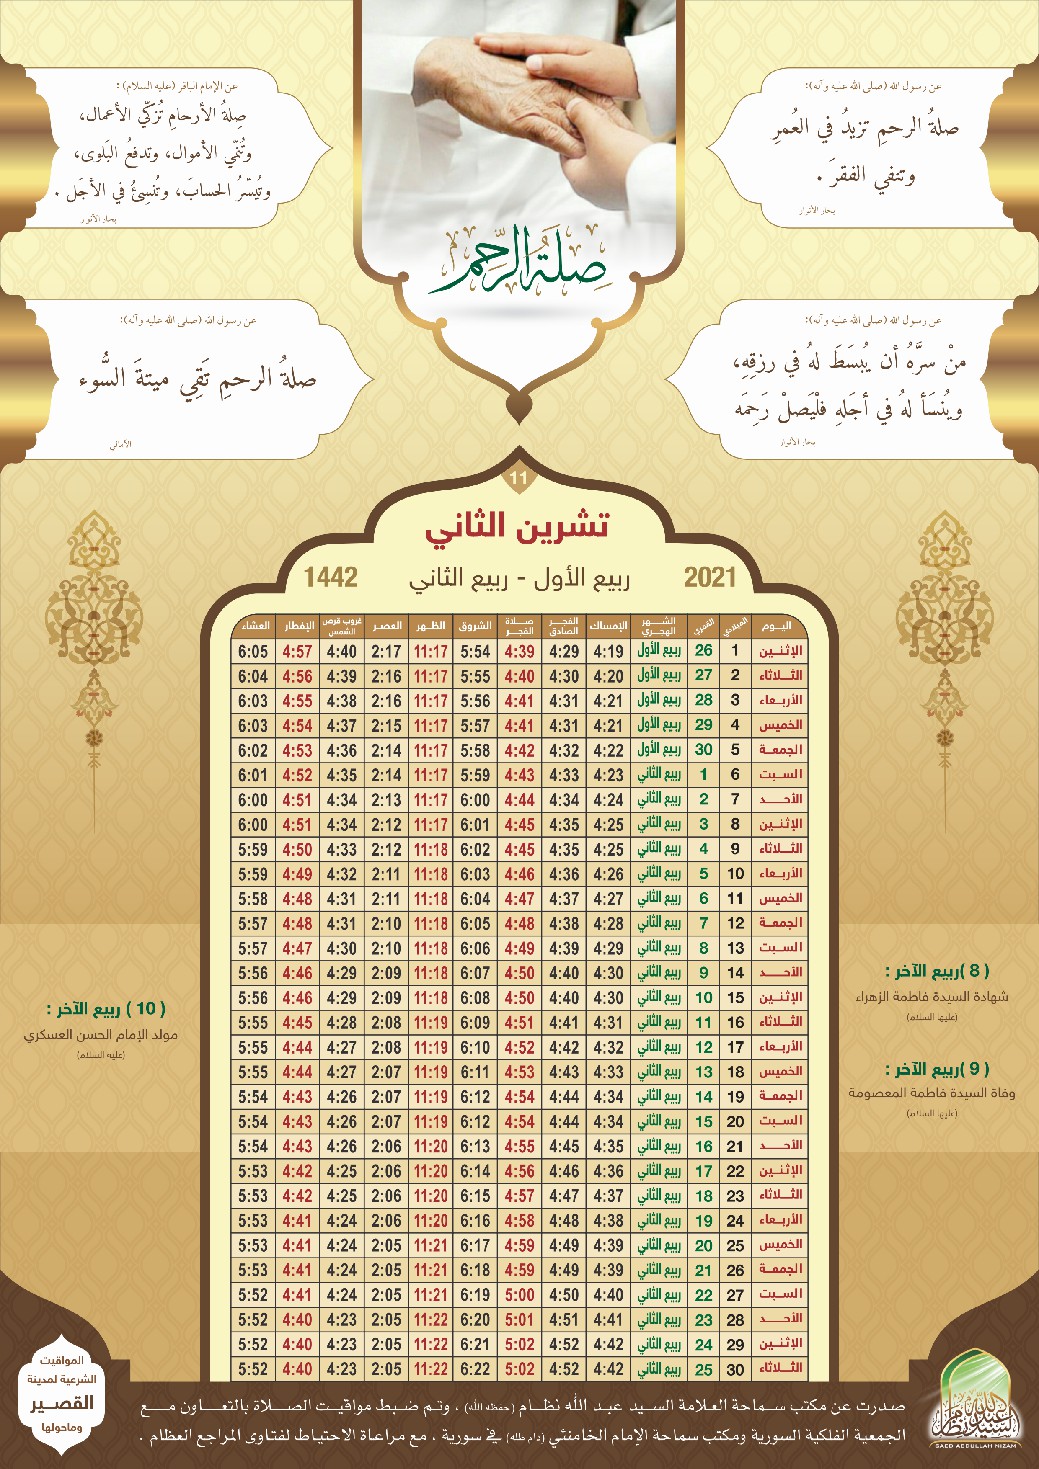 عن رسول الله (صلى الله عليه وآله):
صلةُ الرحمِ تزيدُ في العُمرِ
وتنفي الفقرَ .
بحار الأنوار
عن الإمام الباقر (عليه السلام) :
صِلةُ الأرحامِ تُزكّي الأعمال،
وتُنمّي الأموال، وتدفعُ البَلوى،
وتُيسّرُ الحسابَ، وتُنسِئُ في الأجَل .
بحار الأنوار
صلة الرحم
عن رسول الله (صلى الله عليه وآله):
منْ سرَّهُ أن يُبسَطَ لهُ في رزقِهِ،
ويُنسَأ لهُ في أجَلهِ فلْيَصلْ رَحِمَه
بحار الأنوار
عن رسول الله (صلى الله عليه وآله):
صلةُ الرحمِ تَقِي ميتةَ السُّوء
الأمالي
11
تشرين الثاني
2021 ربيع الأول - ربيع الثاني 1442
اليوم الميلادي القمري الشهر الهجري الإمساك الفجر الصادق صلاة الفجر الشروق الظهر العصر غروب قرص الشمس الإفطار العشاء
الإثنين 1 26 ربيع الأول 4:19 4:29 4:39 5:54 11:17 2:17 4:40 4:57 6:05
الثلاثاء 2 27 ربيع الأول 4:20 4:30 4:40 5:55 11:17 2:16 4:39 4:56 6:04
الأربعاء 3 28 ربيع الأول 4:21 4:31 4:41 5:56 11:17 2:16 4:38 4:55 6:03
الخميس 4 29 ربيع الأول 4:21 4:31 4:41 5:57 11:17 2:15 4:37 4:54 6:03
الجمعة 5 30 ربيع الأول 4:22 4:32 4:42 5:58 11:17 2:14 4:36 4:53 6:02
السبت 6 1 ربيع الثاني 4:23 4:33 4:43 5:59 11:17 2:14 4:35 4:52 6:01
الأحد 7 2 ربيع الثاني 4:24 4:34 4:44 6:00 11:17 2:13 4:34 4:51 6:00
الإثنين 8 3 ربيع الثاني 4:25 4:35 4:45 6:01 11:17 2:12 4:34 4:51 6:00
الثلاثاء 9 4 ربيع الثاني 4:25 4:35 4:45 6:02 11:18 2:12 4:33 4:50 5:59
الأربعاء 10 5 ربيع الثاني 4:26 4:36 4:46 6:03 11:18 2:11 4:32 4:49 5:59
الخميس 11 6 ربيع الثاني 4:27 4:37 4:47 6:04 11:18 2:11 4:31 4:48 5:58
الجمعة 12 7 ربيع الثاني 4:28 4:38 4:48 6:05 11:18 2:10 4:31 4:48 5:57
السبت 13 8 ربيع الثاني 4:29 4:39 4:49 6:06 11:18 2:10 4:30 4:47 5:57
الأحد 14 9 ربيع الثاني 4:30 4:40 4:50 6:07 11:18 2:09 4:29 4:46 5:56
الإثنين 15 10 ربيع الثاني 4:30 4:40 4:50 6:08 11:18 2:09 4:29 4:46 5:56
الثلاثاء 16 11 ربيع الثاني 4:31 4:41 4:51 6:09 11:19 2:08 4:28 4:45 5:55
الأربعاء 17 12 ربيع الثاني 4:32 4:42 4:52 6:10 11:19 2:08 4:27 4:44 5:55
الخميس 18 13 ربيع الثاني 4:33 4:43 4:53 6:11 11:19 2:07 4:27 4:44 5:55
الجمعة 19 14 ربيع الثاني 4:34 4:44 4:54 6:12 11:19 2:07 4:26 4:43 5:54
السبت 20 15 ربيع الثاني 4:34 4:44 4:54 6:12 11:19 2:07 4:26 4:43 5:54
الأحد 21 16 ربيع الثاني 4:35 4:45 4:55 6:13 11:20 2:06 4:26 4:43 5:54
الإثنين 22 17 ربيع الثاني 4:36 4:46 4:56 6:14 11:20 2:06 4:25 4:42 5:53
الثلاثاء 23 18 ربيع الثاني 4:37 4:47 4:57 6:15 11:20 2:06 4:25 4:42 5:53
الأربعاء 24 19 ربيع الثاني 4:38 4:48 4:58 6:16 11:20 2:06 4:24 4:41 5:53
الخميس 25 20 ربيع الثاني 4:39 4:49 4:59 6:17 11:21 2:05 4:24 4:41 5:53
الجمعة 26 21 ربيع الثاني 4:39 4:49 4:59 6:18 11:21 2:05 4:24 4:41 5:53
السبت 27 22 ربيع الثاني 4:40 4:50 5:00 6:19 11:21 2:05 4:24 4:41 5:52
الأحد 28 23 ربيع الثاني 4:41 4:51 5:01 6:20 11:22 2:05 4:23 4:40 5:52
الإثنين 29 24 ربيع الثاني 4:42 4:52 5:02 6:21 11:22 2:05 4:23 4:40 5:52
الثلاثاء 30 25 ربيع الثاني 4:42 4:52 5:02 6:22 11:22 2:05 4:23 4:40 5:52
( 8 )ربيع الآخر :
شهادة السيدة فاطمة الزهراء
(عليها السلام)
( 9 )ربيع الآخر :
وفاة السيدة فاطمة المعصومة
(عليها السلام)
( 10 ) ربيع الآخر :
مولد الإمام الحسن العسكري
(عليه السلام)
المواقيت
الشرعية لمدينة
القصير
وماحولها
صدرت عن مكتب سماحة العلامة السيد عبد الله نظام (حفظه الله) ، وتم ضبط مواقيت الصلاة بالتعاون مع
الجمعية الفلكية السورية ومكتب سماحة الإمام الخامنئي (دام ظله) في سورية ، مع مراعاة الاحتياط لفتاوى المراجع العظام .
السيد عبد الله نظام
SAED ABDULLAH NIZAM